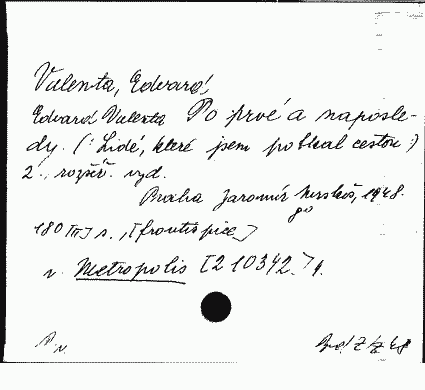 Valenta, Edvard,
Edvard Valenta Po prvé a naposle-
dy. (: Lidé, které jsem potkal cestou :)
2., rozšíř. vyd.
Praha Jaromír 1948.
8°
180 [III] s., [frontispice]
v. Metropolis [2 10342.]